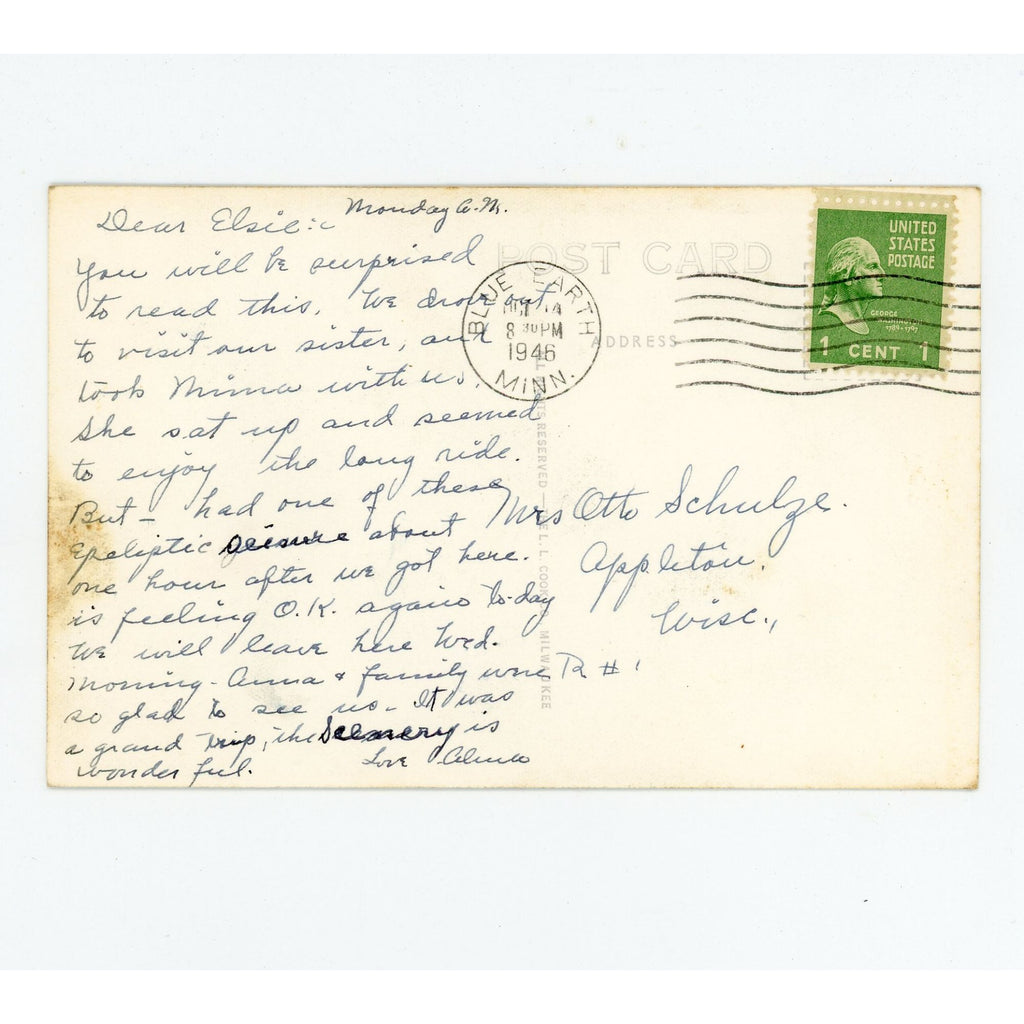 Monday A.M.
Dear Elsie:-
You will be surprised
to read this. We drove out
to visit our sister, and
took Minna with us.
She sat up and seemed
to enjoy the long ride.
But - had one of these
epeliptic seisure about
one hour after we got here.
is feeling O.K. again to-day
We will leave here Wed.
morning - Anna & family were
so glad to see us - It was
a grand trip, the Scenery is
wonderful.
Love Alma
POST CARD
BLUE EARTH
OCT 14
8 30 PM
1946
MINN.
ADDRESS
UNITED
STATES
POSTAGE
GEORGE
WASHINGTON
1789-1797
1 CENT 1
Mrs Otto Schulze.
Appleton.
Wisc.,
R #1
RESERVED - L. L. COOK MILWAUKEE